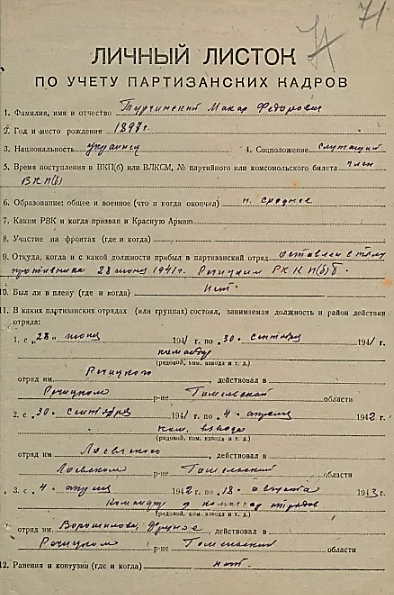 71
ЛИЧНЫЙ ЛИСТОК
ПО УЧЕТУ ПАРТИЗАНСКИХ КАДРОВ
1. Фамилия, имя и отчество Турчинский Макар Федорович
2. Год и место рождения 1897 г.
3. Национальность украинец 4. Соцположение служащий
5. Время поступления в ВКП(б) или ВЛКСМ, № партийного или комсомольского билета член
ВКП(б)
6. Образование: общее и военное (что и когда окончил) н. среднее
7. Каким РВК и когда призван в Красную Армию
8. Участие на фронтах (где и когда)
9. Откуда, когда и с какой должности прибыл в партизанский отряд оставлен в тылу
противника 28 июня 1941 г. Речицким РК КП(б)Б
10. Был ли в плену (где и когда) нет
11. В каких партизанских отрядах (или группах) состоял, занимаемая должность и район действия
отряда:
1. с 28 июня 1941 г. по 30 сентября 1941 г.
(рядовой, ком. взвода и т. д.)
отряд им Речицкого, действовал в
Речицком р-не Гомельской области
2. с 30 сентября 1941 г. по 4 апреля 1942 г.
ком. взвода
(рядовой, ком. взвода и т. д.)
отряд им Лоевского, действовал в
Лоевском р-не Гомельской области
3. с 4 апреля 1942 г. по 18 августа 1943 г.
командир и комиссар отрядов
(рядовой, ком. взвода и т. д.)
отряд им Ворошилова, действовал в
Речицком р-не Гомельской области
12. Ранения и контузия (где и когда) нет